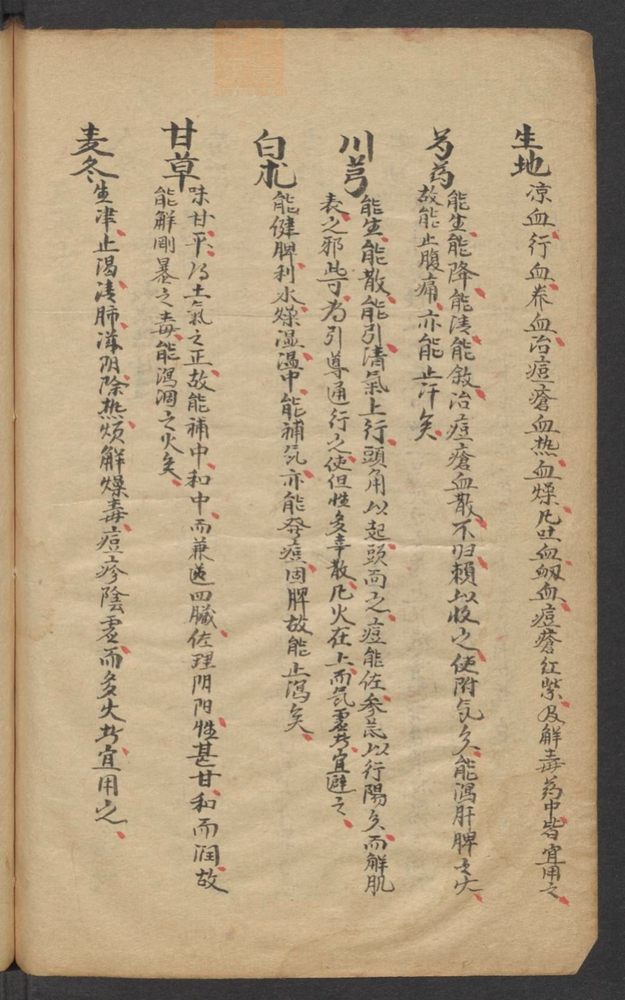 生地 凉血、行血、养血、治痘瘡血热血燥、凡吐血衂血、痘瘡红紫、及解毒药中皆宜用之、
芍药 能生、能降、能清、能敛、治痘瘡血散不归、賴以收之、使附气矣、能瀉肝脾之火、
故能止腹痛、亦能止汗矣、
川芎 能生、能散、能引清氣上行頭角、以起頭面之痘、能佐参芪以行陽矣、而解肌
表之邪、此可为引導通行之使、但性多辛散、凡火在上而気虚者、宜避之、
白朮 能健脾利水、燥湿温中、能補気、亦能發痘、固脾故能止瀉矣、
甘草 味甘平、乃土氣之正、故能補中和中、而兼逹四臟、佐理阴阳、性甚甘和而润、故
能解剛暴之毒、能瀉涸之火矣、
麦冬 生津止渴、清肺滋阴、除热烦、解燥毒、痘疹陰虚而多火者、宜用之、